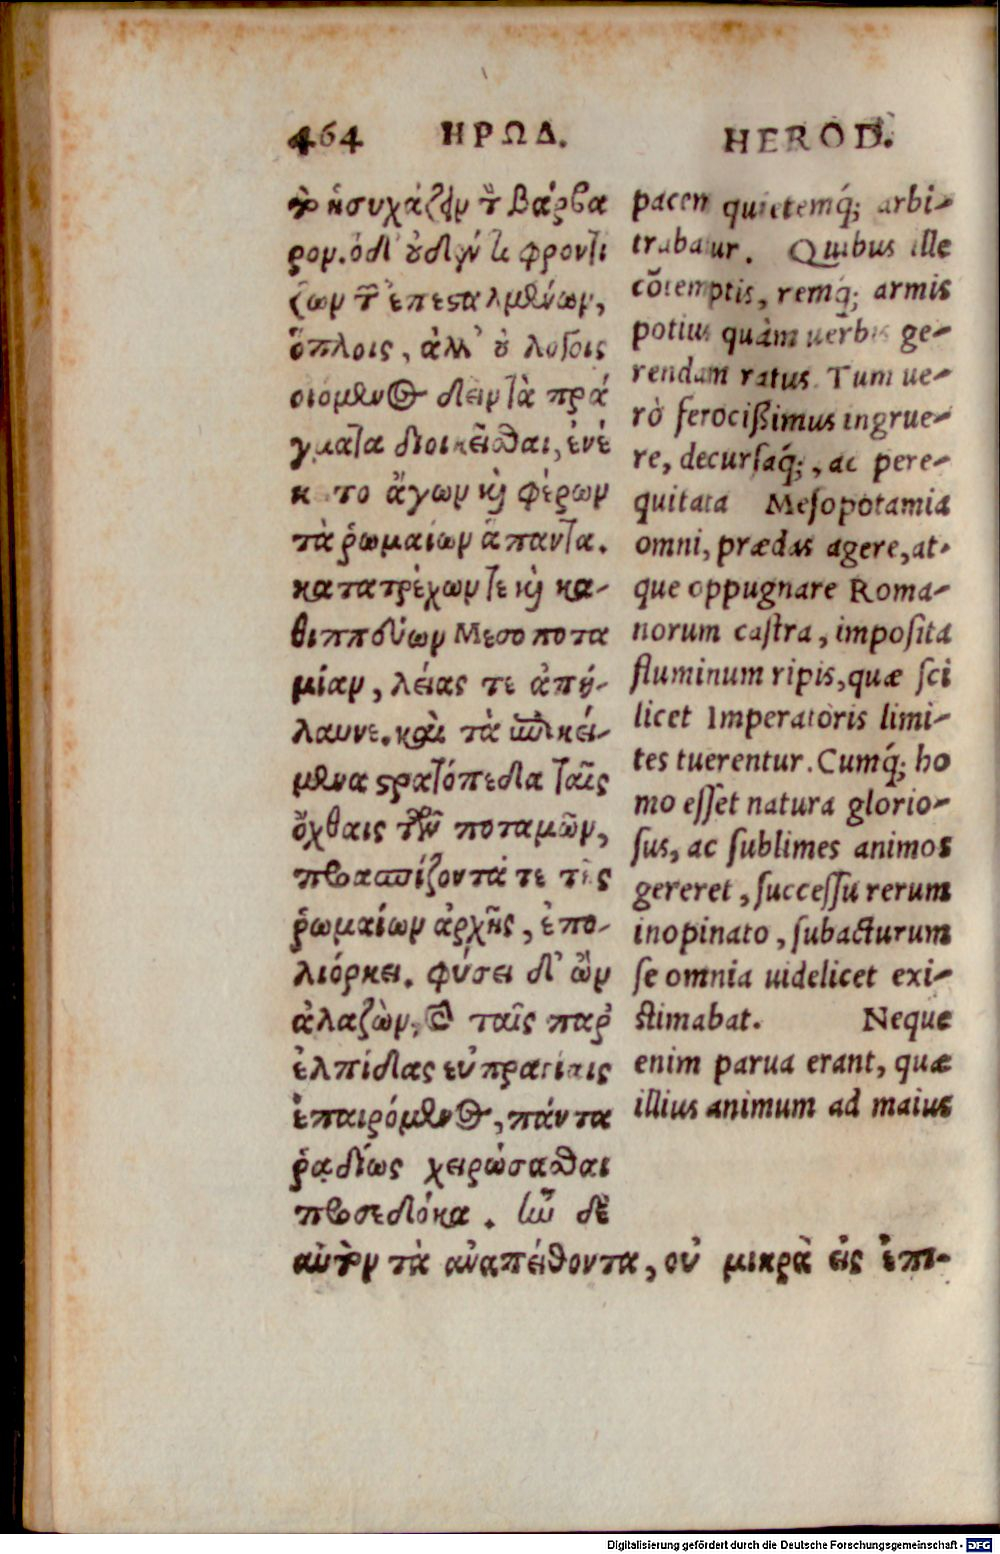 464 ΗΡΩΔ. HEROD.
τὸ ἡσυχάζειν τὸν βάρβα
ρον. ὁ δ' οὐδέν τι φροντί
ζων τῶν ἐπεσταλμένων,
ὅπλοις, ἀλλ' οὐ λόγοις
οἰόμενος δεῖν τὰ πρά
γματα διοικεῖσθαι, ἐνέ
κ το ἄγων καὶ φέρων
τὰ ῥωμαίων ἅπαντα.
κατατρέχων τε καὶ κα-
θιππεύων Μεσοποτα
μίαν, λείας τε ἀπή-
λαυνε. καὶ τὰ ἐπικεί-
μενα στρατόπεδα ταῖς
ὄχθαις τῶν ποταμῶν,
προασπίζοντά τε τῆς
ῥωμαίων ἀρχῆς, ἐπο-
λιόρκει. φύσει δ' ὢν
ἀλαζὼν, καὶ ταῖς παρ'
ἐλπίδας εὐπραγίαις
ἐπαιρόμενος, πάντα
ῥᾳδίως χειρώσασθαι
προσεδόκα. ἦν δὲ
αὐτὸν τὰ ἀναπείθοντα, οὐ μικρὰ εἰς ἐπι-
pacem quietemq́; arbi-
trabatur. Quibus ille
cōtemptis, remq́; armis
potius quàm uerbis ge-
rendam ratus. Tum ue-
rò ferocißimus ingrue-
re, decursaq́;, ac pere-
quitata Mesopotamia
omni, prædas agere, at-
que oppugnare Roma-
norum castra, imposita
fluminum ripis, quæ sci
licet Imperatoris limi-
tes tuerentur. Cumq́; ho
mo esset natura glorio-
sus, ac sublimes animos
gereret, successu rerum
inopinato, subacturum
se omnia uidelicet exi-
stimabat. Neque
enim parua erant, quæ
illius animum ad maius
Digitalisierung gefördert durch die Deutsche Forschungsgemeinschaft - DFG